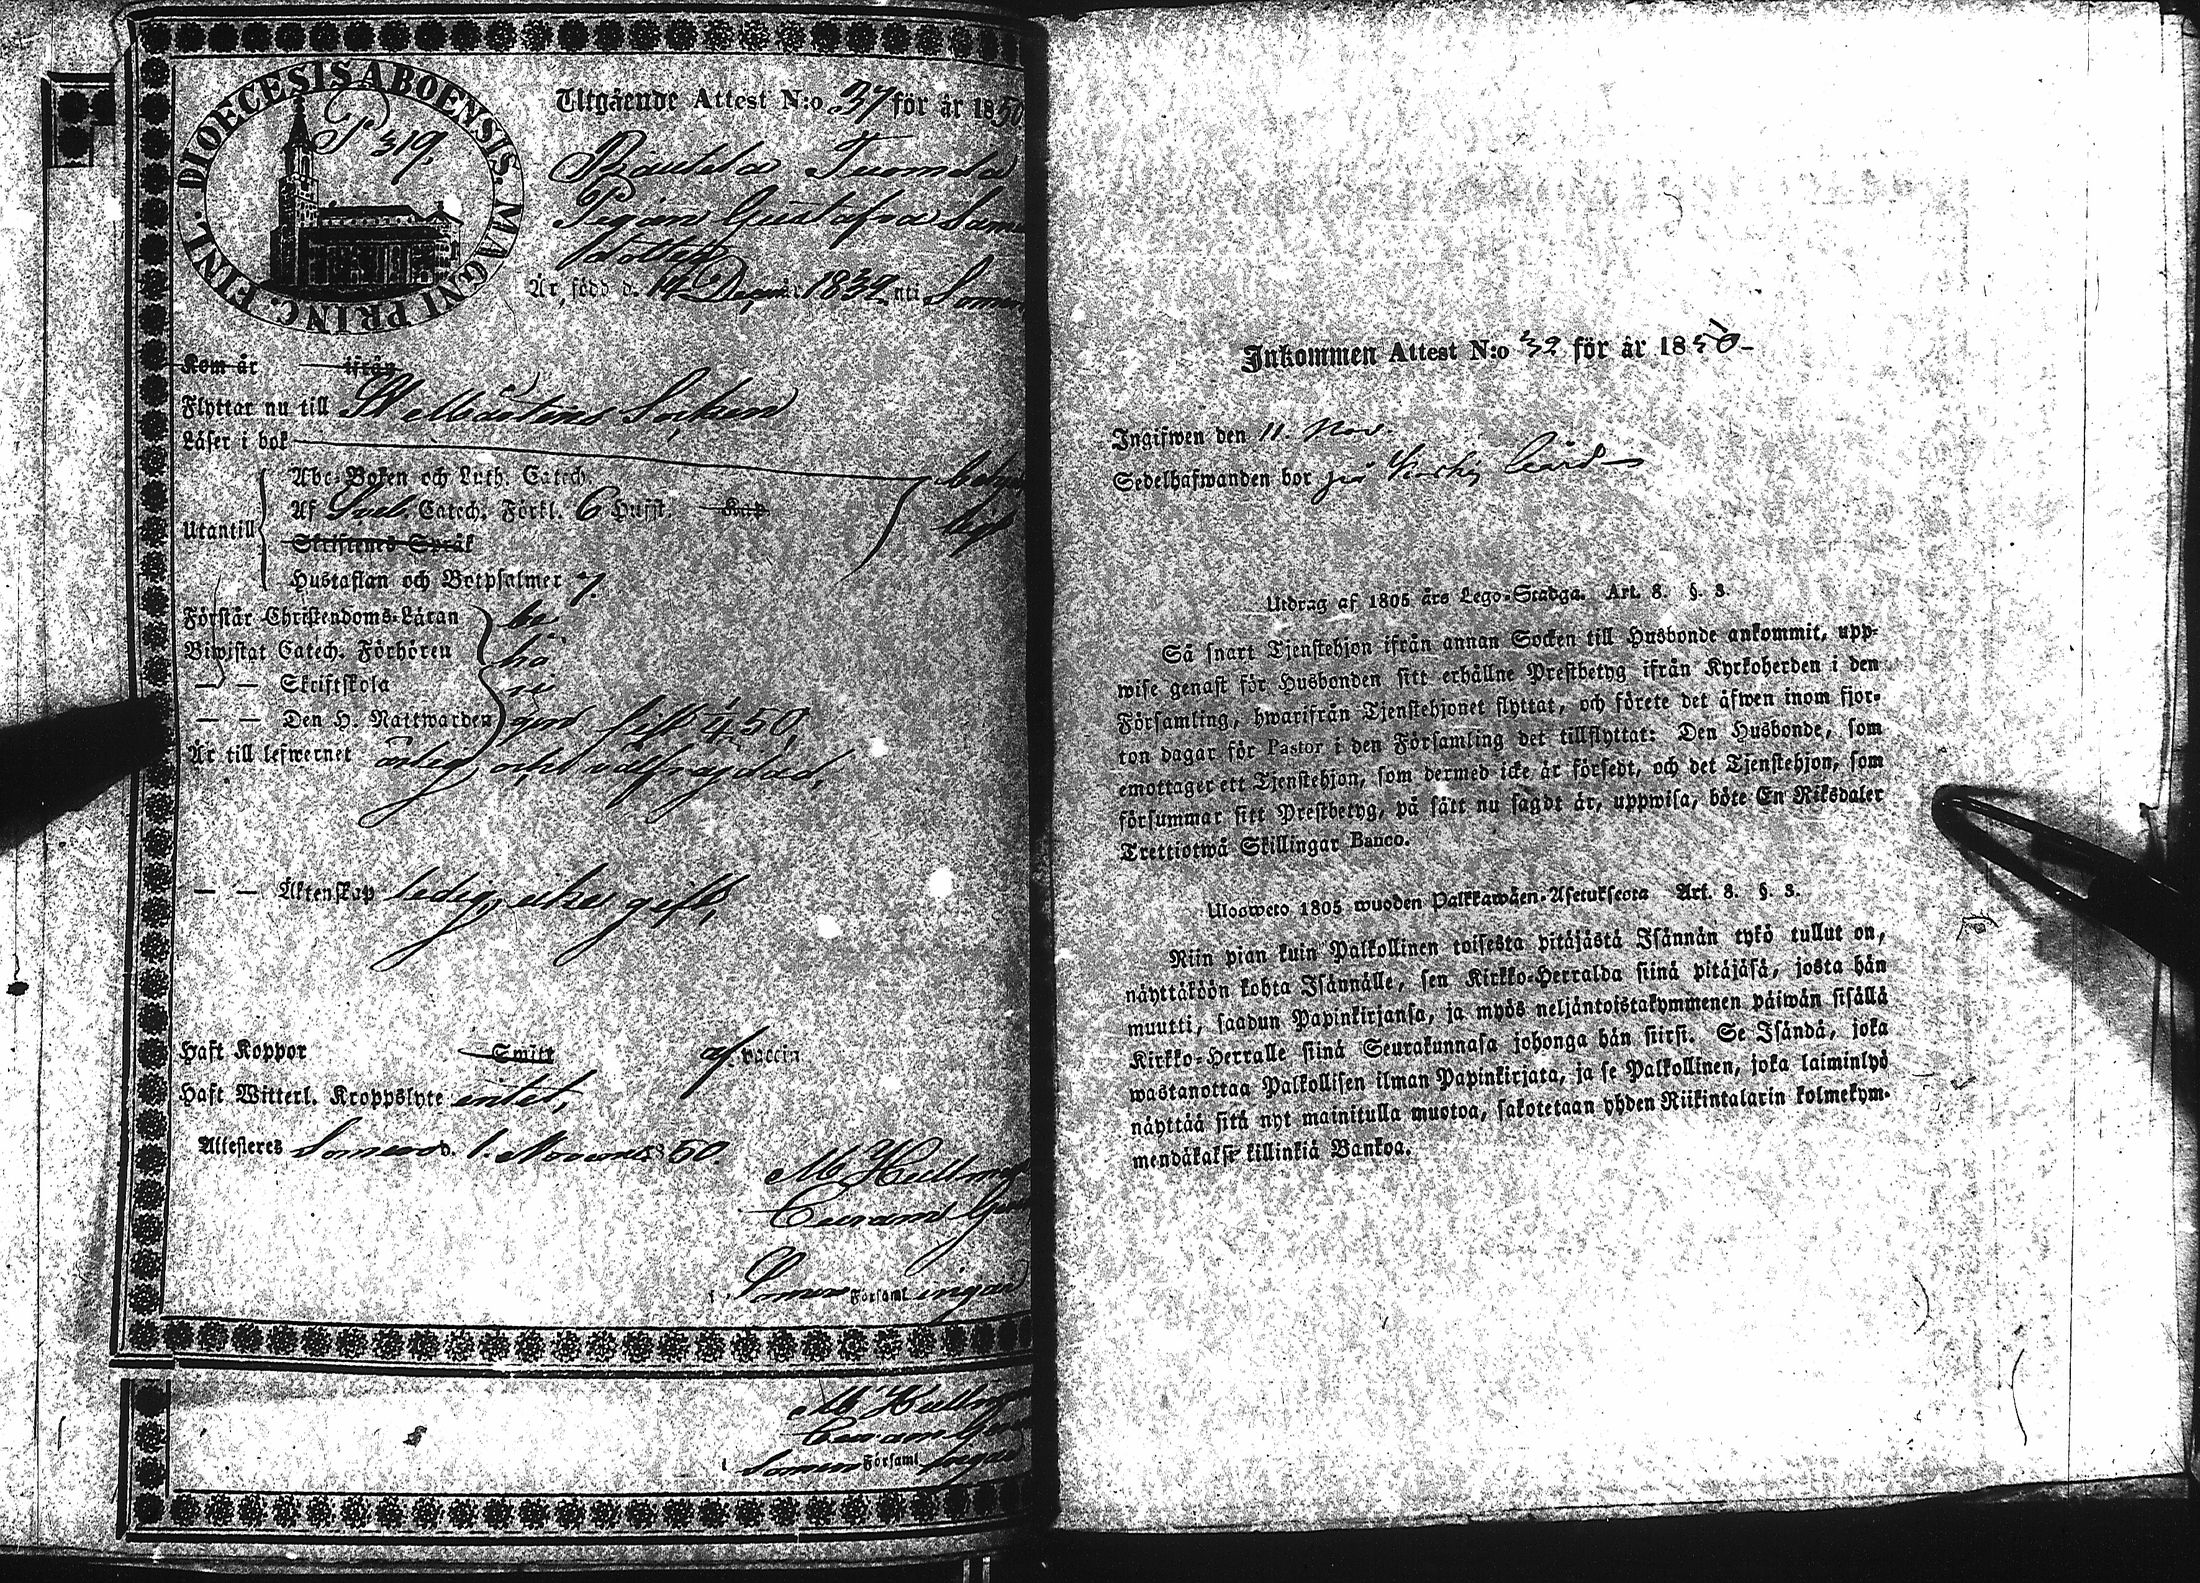 DIOECESIS ABOENSIS. MAGNI PRINC. FINL.
P 319.
Utgående Attest N:o 37 för år 1850.
Tuomola
Pigan Gustafva
Är född d. 19 Decem 1832 uti Somer
Kom år ifrån
Flyttar nu till St Mårtens Socken
Läser i bok
Utantill
Abc-Boken och Luth. Catech.
Af Sveb. Catech. Förkl. 6 Hufst. Kap
Skriftenes Språk
Hustaflan och Botpsalmer 7.
Förstår Christendoms-Läran
Biwistat Catech. Förhören
— — Skriftskola
— — Den H. Nattwarden sist 1/4 50.
Är till lefwernet ärlig och välfrejdad,
— — Äktenskap ledig, icke gift,
Haft Koppor Smitt af vaccin
Haft Witterl. Kroppslyte intet,
Attesteres Somero d. 1. November 1850.
M Hellm
i Somero Församl
M Hell
i Somero Församl
Inkommen Attest N:o 32 för år 1850-
Ingifwen den 11. Nov.
Sedelhafwanden bor på
Utdrag af 1805 års Lego-Stadga. Art. 8. §. 3.
Så snart Tjenstehjon ifrån annan Socken till Husbonde ankommit, upp-
wise genast för Husbonden sitt erhållne Prestbetyg ifrån Kyrkoherden i den
Församling, hwarifrån Tjenstehjonet flyttat, och förete det äfwen inom fjor-
ton dagar för Pastor i den Församling det tillflyttat: Den Husbonde, som
emottager ett Tjenstehjon, som dermed icke är försedt, och det Tjenstehjon, som
försummar sitt Prestbetyg, på sätt nu sagdt är, uppwisa, böte En Riksdaler
Trettiotwå Skillingar Banco.
Ulosweto 1805 wuoden Palkkawäen-Asetuksesta Art. 8. §. 3.
Niin pian kuin Palkollinen toisesta pitäjästä Isännän tykö tullut on,
näyttäköön kohta Isännälle, sen Kirkko-Herralda siinä pitäjäsä, josta hän
muutti, saadun Papinkirjansa, ja myös neljäntoistakymmenen päiwän sisällä
Kirkko-Herralle siinä Seurakunnasa johonga hän siirsi. Se Isändä, joka
wastanottaa Palkollisen ilman Papinkirjata, ja se Palkollinen, joka laiminlyö
näyttää sitä nyt mainitulla muotoa, sakotetaan yhden Riikintalarin kolmekym-
mendäkaksi killinkiä Bankoa.